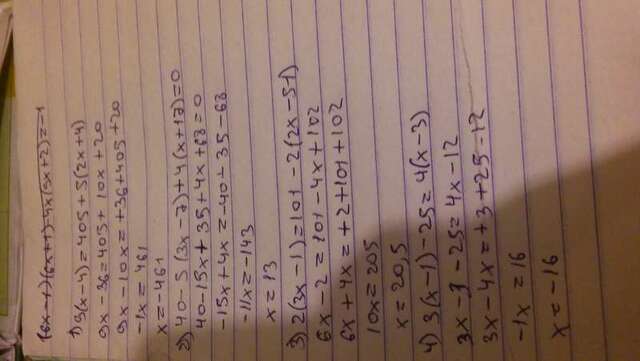 (6x-1)(6x+1)-4x(9x+2)=-1
1) 9(x-4)=405+5(2x+4)
9x-36=405+10x+20
9x-10x=+36+405+20
-1x=461
x=-461
2) 40-5(3x-7)+4(x+17)=0
40-15x+35+4x+68=0
-15x+4x=-40-35-68
-11x=-143
x=13
3) 2(3x-1)=101-2(2x-51)
6x-2=101-4x+102
6x+4x=+2+101+102
10x=205
x=20,5
4) 3(x-1)-25=4(x-3)
3x-3-25=4x-12
3x-4x=+3+25-12
-1x=16
x=-16